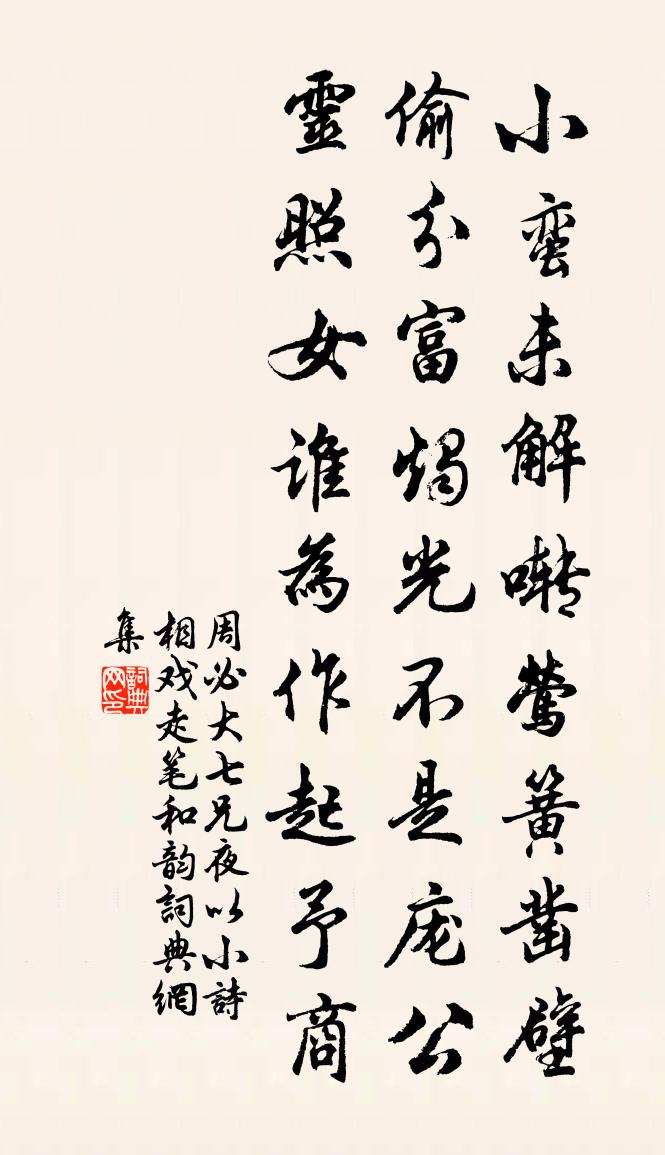 小蛮未解啭鶯簧凿壁
偷分富燭光不是庞公
靈照女誰為作起予商
周必大七兄夜以小詩
相戏走笔和韵詞典網
集
詞典
网印